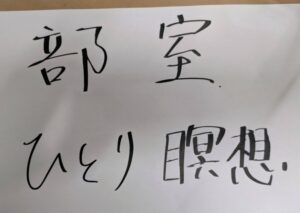 部室
ひとり瞑想.